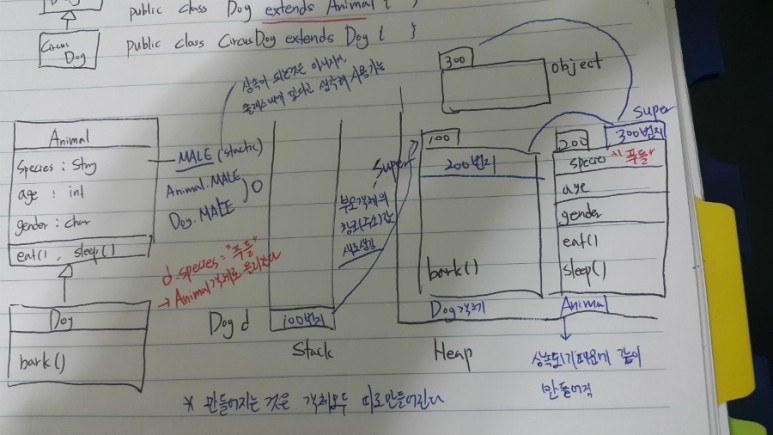 Dog public class Dog extends Animal { }
Circus Dog public class CircusDog extends Dog { }
300
object
상속이 되는것은 아니지만
클래스내에 있다고 생각해 사용가능
super
Animal
Species : Strng
age : int
gender : char
eat(), sleep()
MALE (static)
Animal.MALE
Dog.MALE
d.species = "푸들"
→ Animal 객체로 올라간다
Dog
bark()
Dog d
100번지
Stack
부모객체의
참조(주소)값
새로생김
super
100
200번지
bark()
Dog객체
Heap
200
300번지
species "푸들"
age
gender
eat()
sleep()
Animal
상속되기때문에 같이
만들어짐
* 만들어지는 것은 객체모두 따로만들어진다